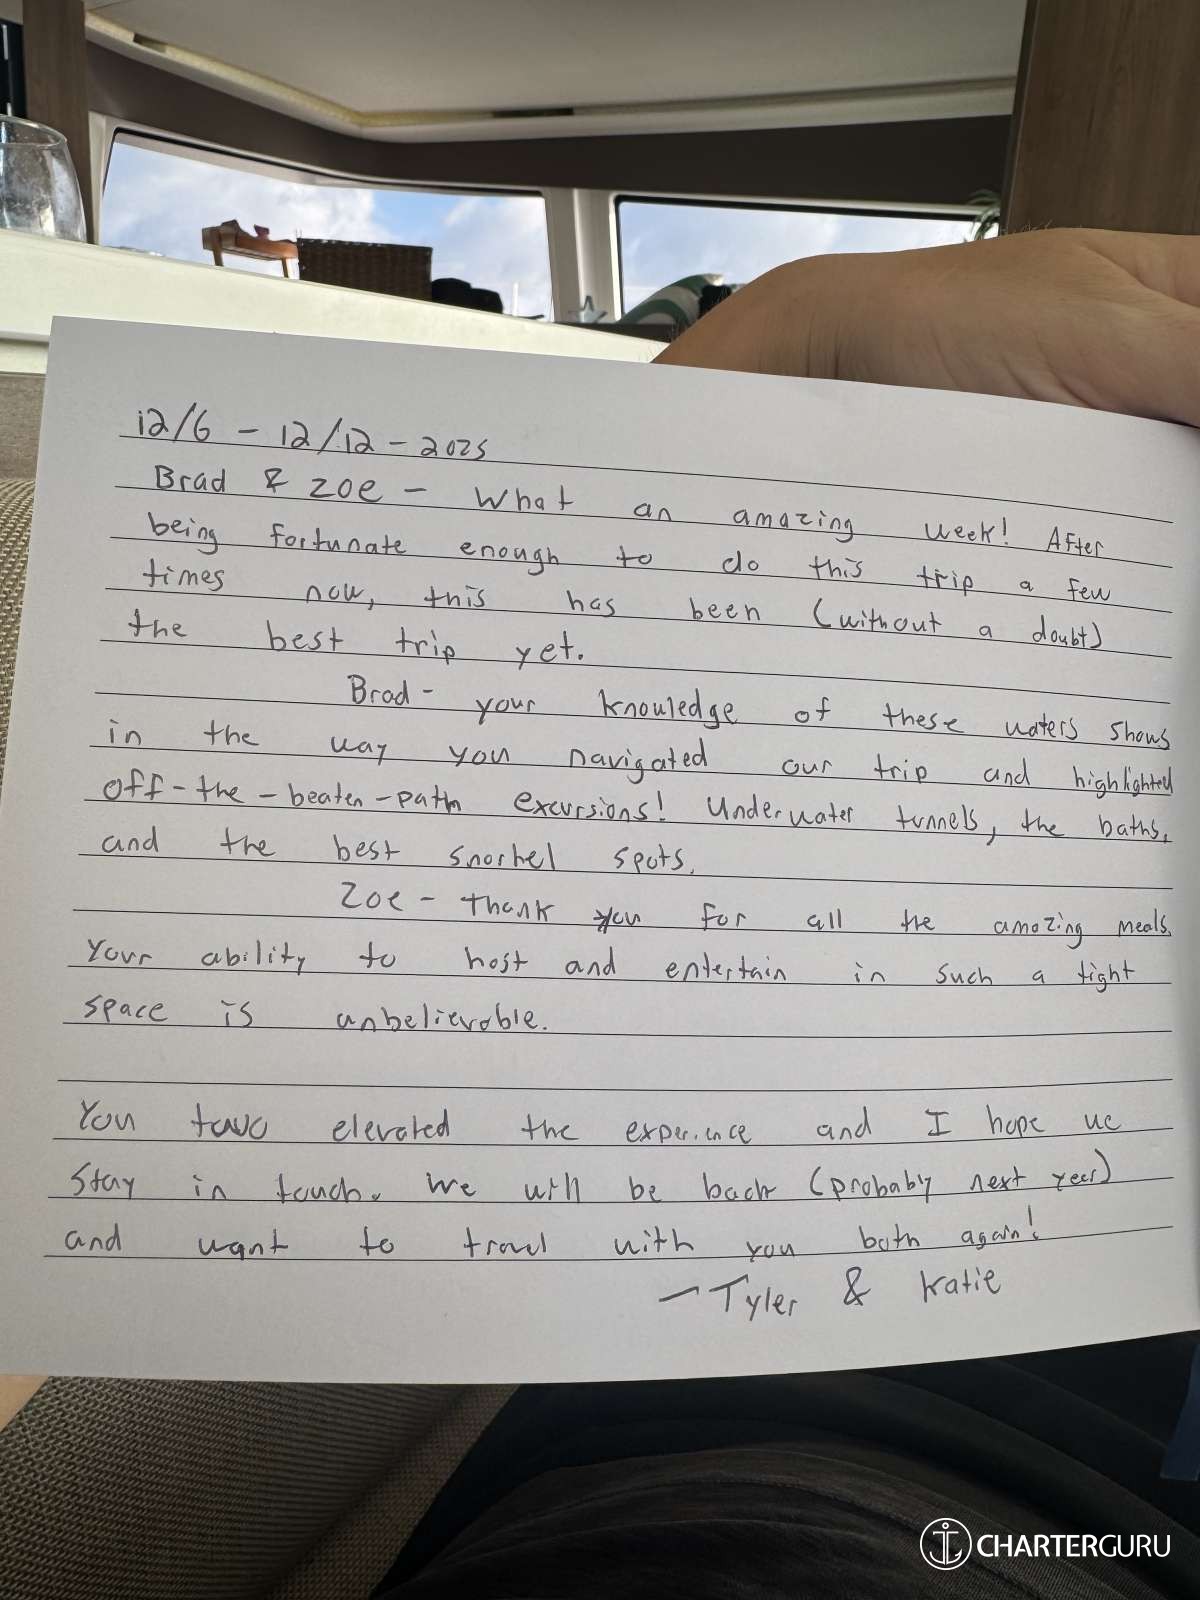 12/6 - 12/12 - 2025
Brad & Zoe - What an amazing week! After
being fortunate enough to do this trip a few
times now, this has been (without a doubt)
the best trip yet.
Brad - your knowledge of these waters shows
in the way you navigated our trip and highlighted
off-the-beaten-path excursions! Underwater tunnels, the baths,
and the best snorkel spots.
Zoe - thank you for all the amazing meals.
Your ability to host and entertain in such a tight
space is unbelievable.
You have elevated the experience and I hope we
stay in touch. We will be back (probably next year)
and want to travel with you both again!
- Tyler & Katie
CHARTERGURU